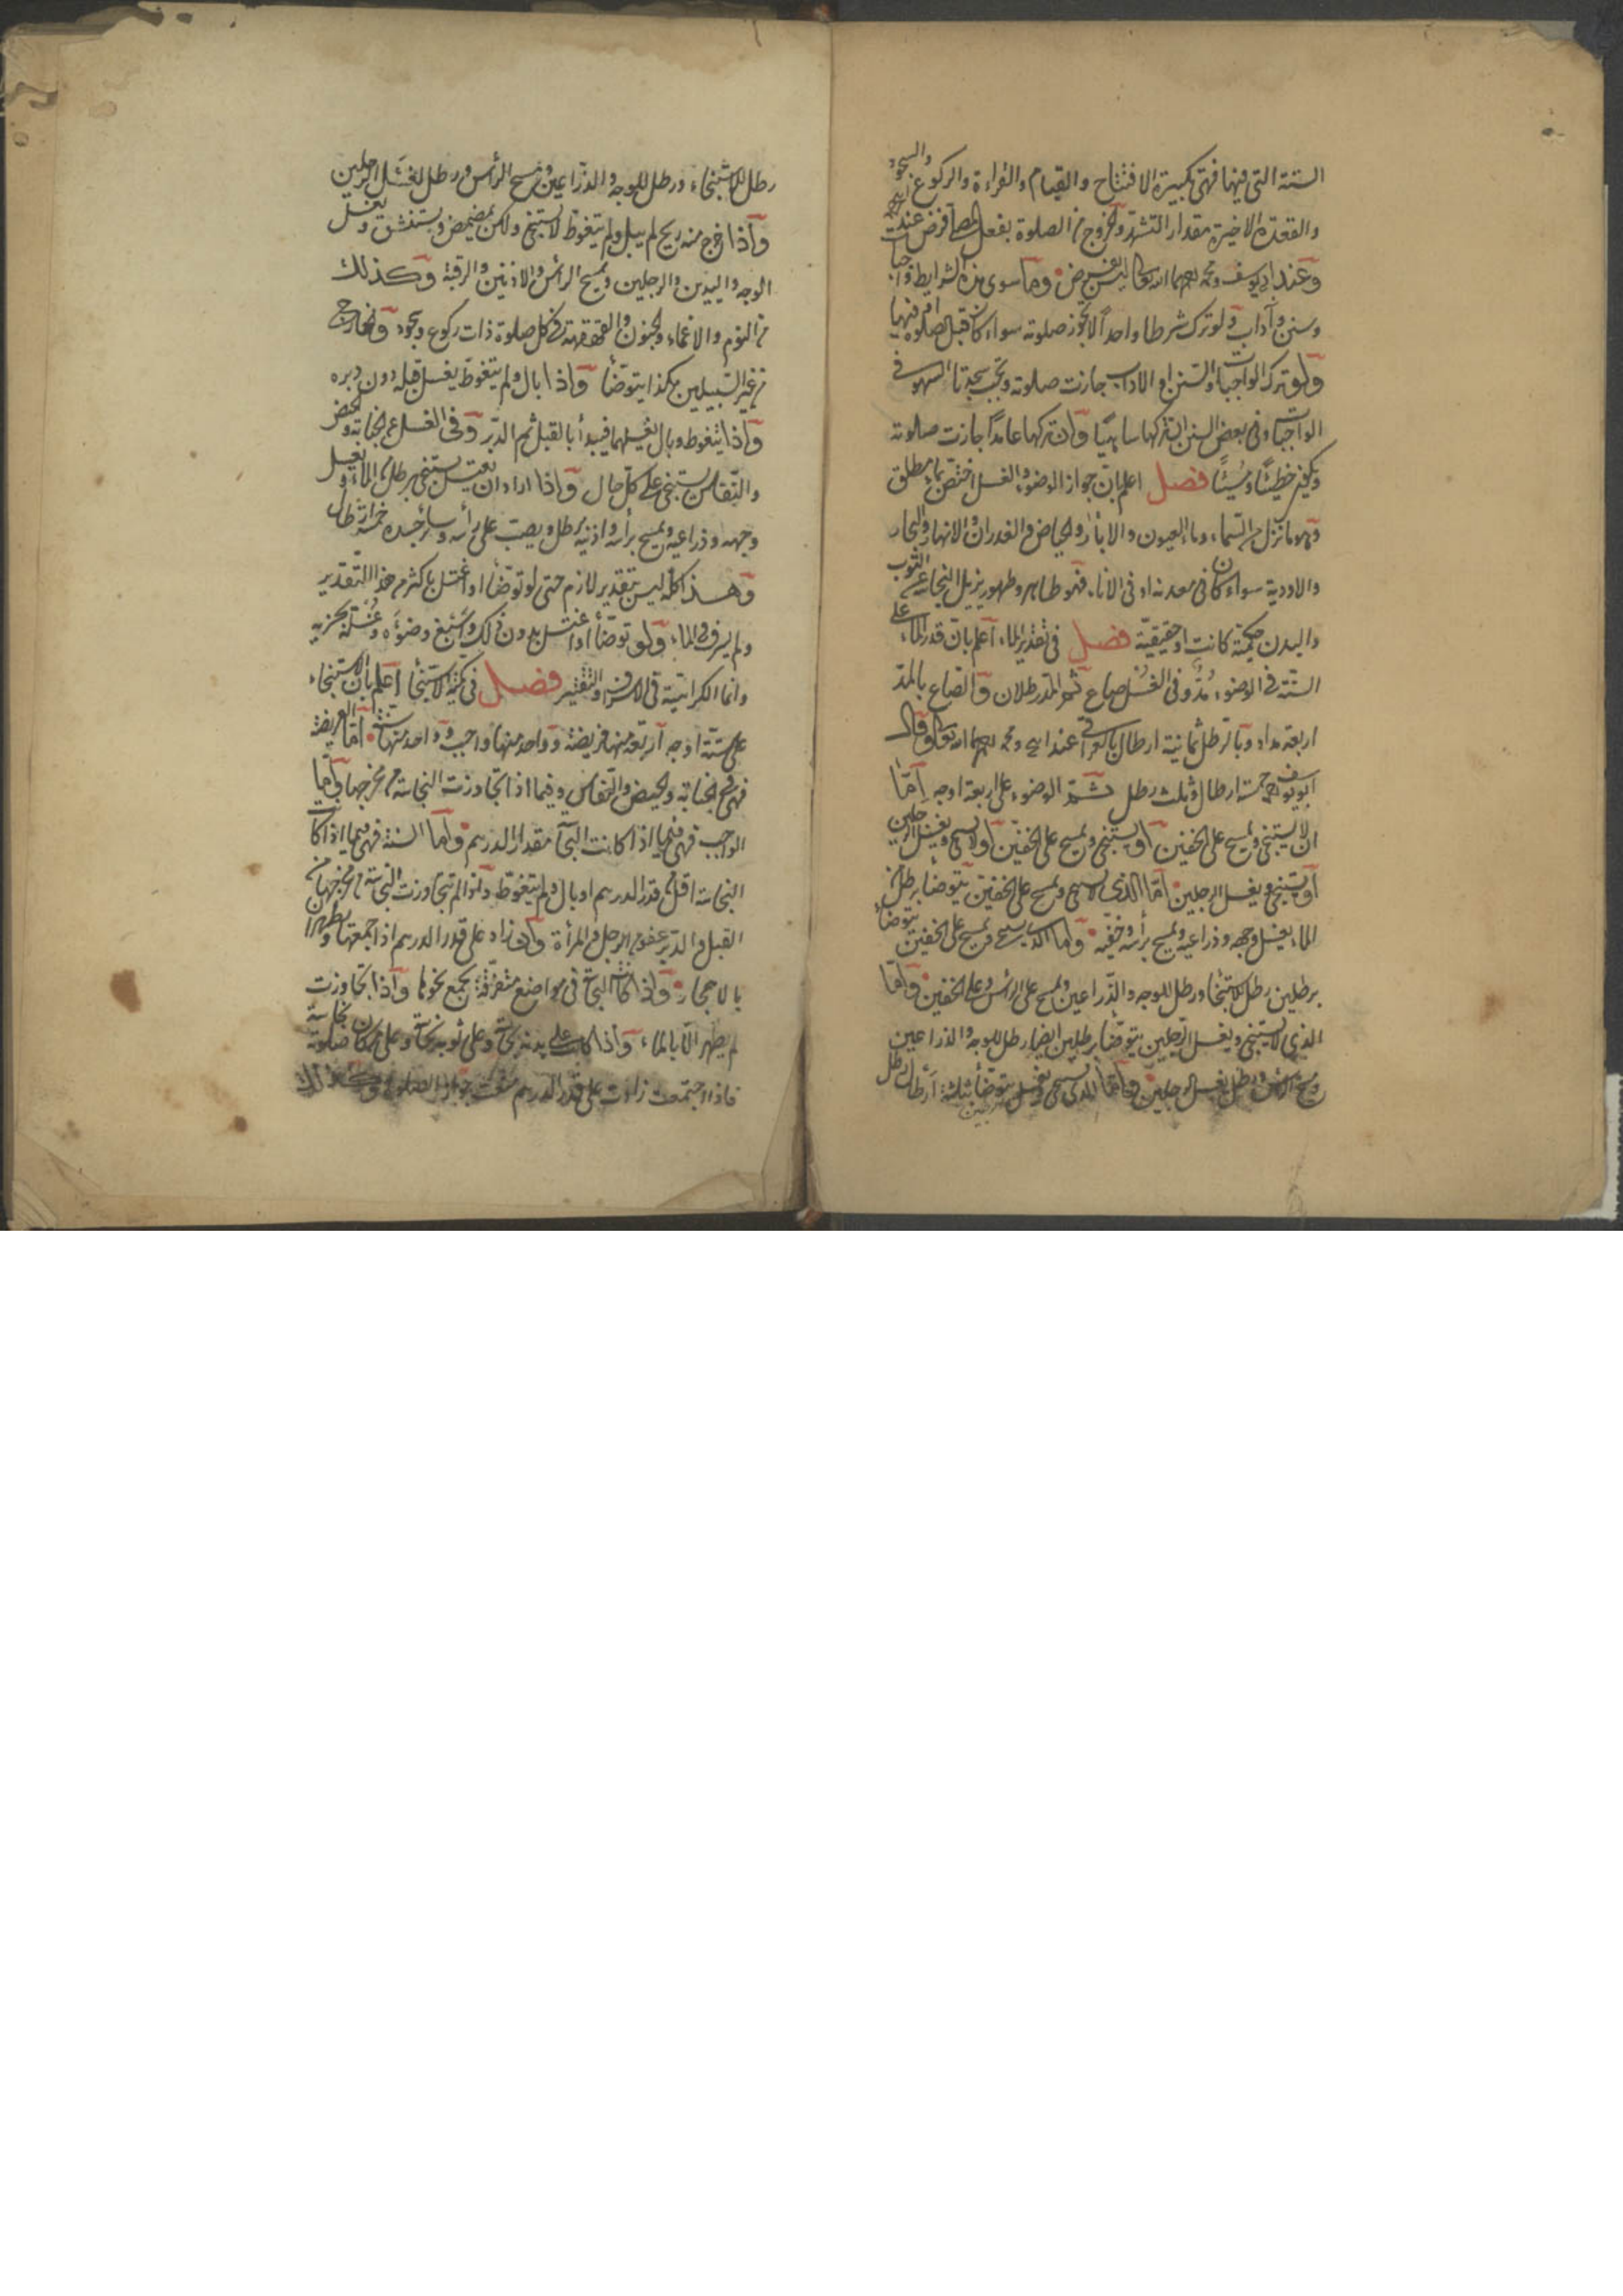 الستة التي فيها فهي تكبيرة الافتتاح والقيام والقراءة والركوع والسجود
والقعدة الاخيرة مقدار التشهد والخروج من الصلوة بفعل المصلي فرض عند
وعند ابي يوسف ومحمد رحمهما الله تعالى ليس بفرض وما سوى هذه الشرايط واجبات
وسنن وآداب ولو ترك شرطا واحدا لا تجوز صلوته سواء كان قبل الصلوة او فيها
ولو ترك الواجبات او السنن او الاداب جازت صلوته وتجب سجدتا السهو في
الواجبات وفي بعض السنن ان تركها ساهيا وان تركها عامدا جازت صلوته
ويكون خطيئا ومسيئا فصل اعلم بان جواز الوضوء والغسل اختص بماء مطلق
وهو ما نزل من السماء وماء العيون والابار والحياض والغدران والانهار والبحار
والاودية سواء كان في معدنه او في الاناء فهو طاهر وطهور يزيل النجاسة عن الثوب
والبدن حكمية كانت او حقيقية فصل في تقدير الماء اعلم بان قدر الماء على
السنة في الوضوء مد وفي الغسل صاع ثم المد رطلان والصاع بالمد
اربعة امداد وبالرطل ثمانية ارطال بالعراقي عند ابي ومحمد رحمهما الله تعالى وقال
ابو يوسف رحمه خمسة ارطال وثلث رطل ثم الوضوء على اربعة اوجه اما
ان لا يستنجي ويمسح على الخفين او يستنجي ويمسح على الخفين او لا يستنجي ويغسل الرجلين
او يستنجي ويغسل الرجلين اما الذي لا يستنجي ويمسح على الخفين يتوضأ برطل من
الماء يغسل وجهه وذراعيه ويمسح برأسه وخفيه واما الذي يستنجي ويمسح على الخفين يتوضأ
برطلين رطل للاستنجاء ورطل للوجه والذراعين ويمسح على الرأس وعلى الخفين واما
الذي لا يستنجي ويغسل الرجلين يتوضأ برطلين ايضا رطل للوجه والذراعين
ومسح الرأس ورطل يغسل الرجلين واما الذي يستنجي ويغسل يتوضأ بثلثة ارطال رطل
رطل للاستنجاء ورطل للوجه والذراعين ومسح الرأس ورطل لغسل الرجلين
واذا خرج منه ريح لم يبل ولم يتغوط لا يستنجي ولكن يمضمض ويستنشق ويغسل
الوجه واليدين والرجلين ويمسح الرأس والاذنين والرقبة وكذلك
من النوم والاغماء والجنون والقهقهة في كل صلوة ذات ركوع وسجود والخارج
من غير السبيلين هكذا يتوضأ واذا بال ولم يتغوط يغسل قبله دون دبره
واذا تغوط وبال يغسلهما فيبدأ بالقبل ثم الدبر وفي الغسل عن الجنابة والحيض
والنفاس يستنجي على كل حال واذا اراد ان يغتسل يستنجي برطل من الماء ويغسل
وجهه وذراعيه ويمسح برأسه واذنيه برطل ويصب على رأسه وسائر جسده خمسة ارطال
وهذا كله ليس بتقدير لازم حتى لو توضأ او اغتسل باكثر من هذا التقدير
ولم يسرف في الماء ولو توضأ او اغتسل بدون ذلك واسبغ وضوءه وغسله يجزيه
وانما الكراهية في الاسراف والتقتير فصل في كمية الاستنجاء اعلم بان الاستنجاء
على ستة اوجه اربعة منها فريضة وواحد منها واجب وواحد منها سنة اما الفريضة
فهي في الجنابة والحيض والنفاس وفيما اذا تجاوزت النجاسة من مخرجها واما
الواجب فهي فيما اذا كانت النجاسة مقدار الدرهم واما السنة فهي فيما اذا كانت
النجاسة اقل من قدر الدرهم او بال ولم يتغوط ولو لم تجاوزت النجاسة من مخرجها من
القبل والدبر عفو من الرجل والمرأة وان زاد على قدر الدرهم اذا جمعتها وطهرا
بالاحجار واذا كانت النجاسة في مواضع متفرقة يجمع نحوها واذا تجاوزت
لم يطهر الا بالماء واذا كانت على بدنه نجاسة وعلى ثوبه نجاسة وعلى مكان صلوته نجاسة
فاذا اجتمعت زادت على قدر الدرهم منعت جواز الصلوة وكذلك